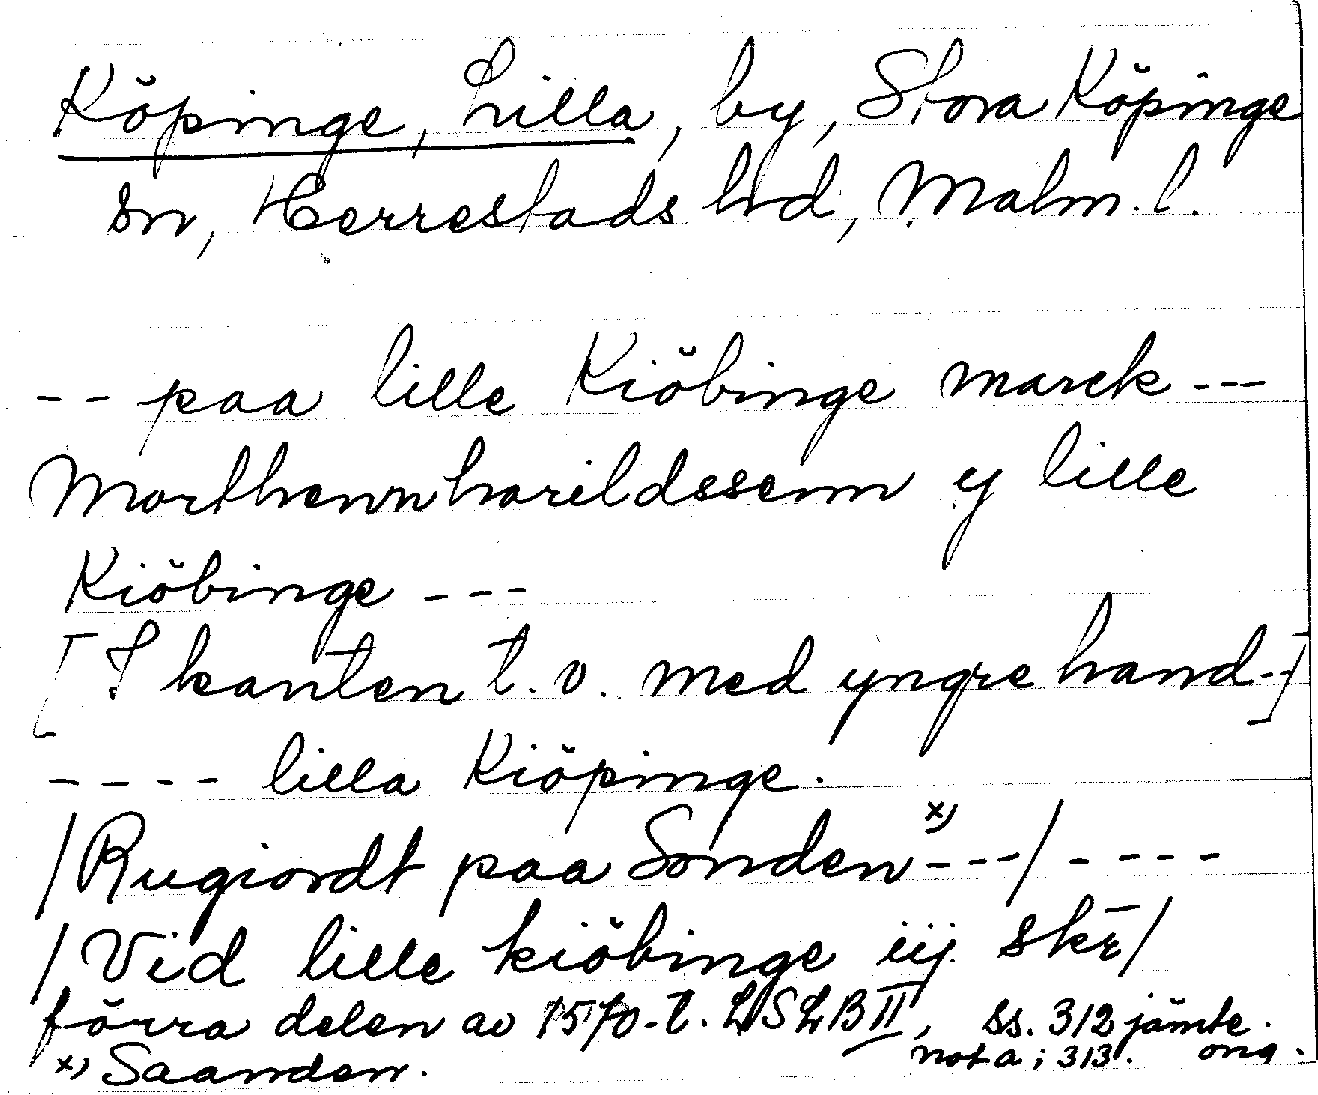 Köpinge, Lilla, by, Stora Köpinge
sn, Herrestads hd, Malm. l.
-- paa lille Kiöbinge marck ---
Morthenn harildssenn y lille
Kiöbinge ---
[I kanten t. v. med yngre hand-]
---- lilla Kiöpinge.
/Rugiordt paa Sonden x) ---/ ----
/Vid lille kiöbinge iij skē/
förra delen av 1570-t. LSLB II, ss. 312 jämte
nota; 313. orig.
x) Saanden.